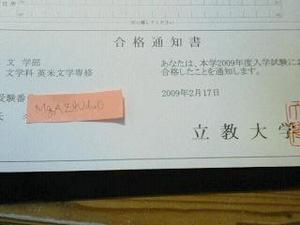 合格通知書
文 学部
文学科 英米文学専修
あなたは、本学2009年度入学試験に
合格したことを通知します。
受験番
2009年2月17日
立教大学